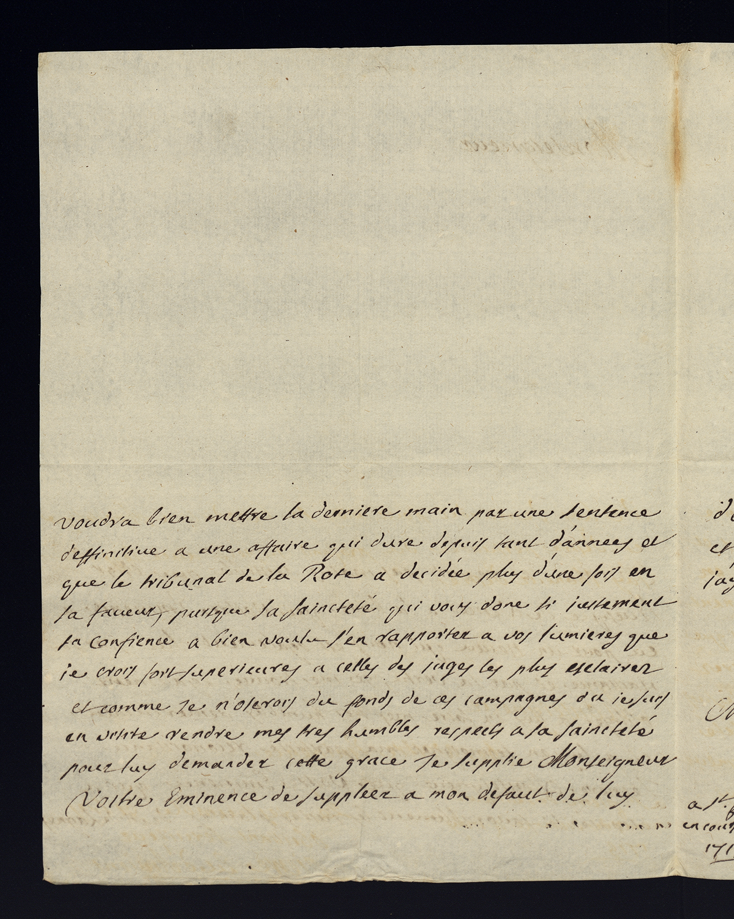 voudra bien mettre la derniere main par une sentence
deffinitive a une affaire qui dure depuis tant d'années et
que le tribunal de la Rote a decidée plus d'une fois en
sa faveur, puisque sa saincteté qui vous done si iustement
sa confience a bien voulu s'en rapporter a vos lumieres que
ie crois fort superieures a celles des iuges les plus esclairez
et comme ie n'oserois du fonds de ces campagnes ou ie suis
en visite rendre mes tres humbles respects a sa saincteté
pour luy demander cette grace ie supplie Monseigneur
Vostre Eminence de suppleer a mon defaut de luy
et
a St
en cour
171